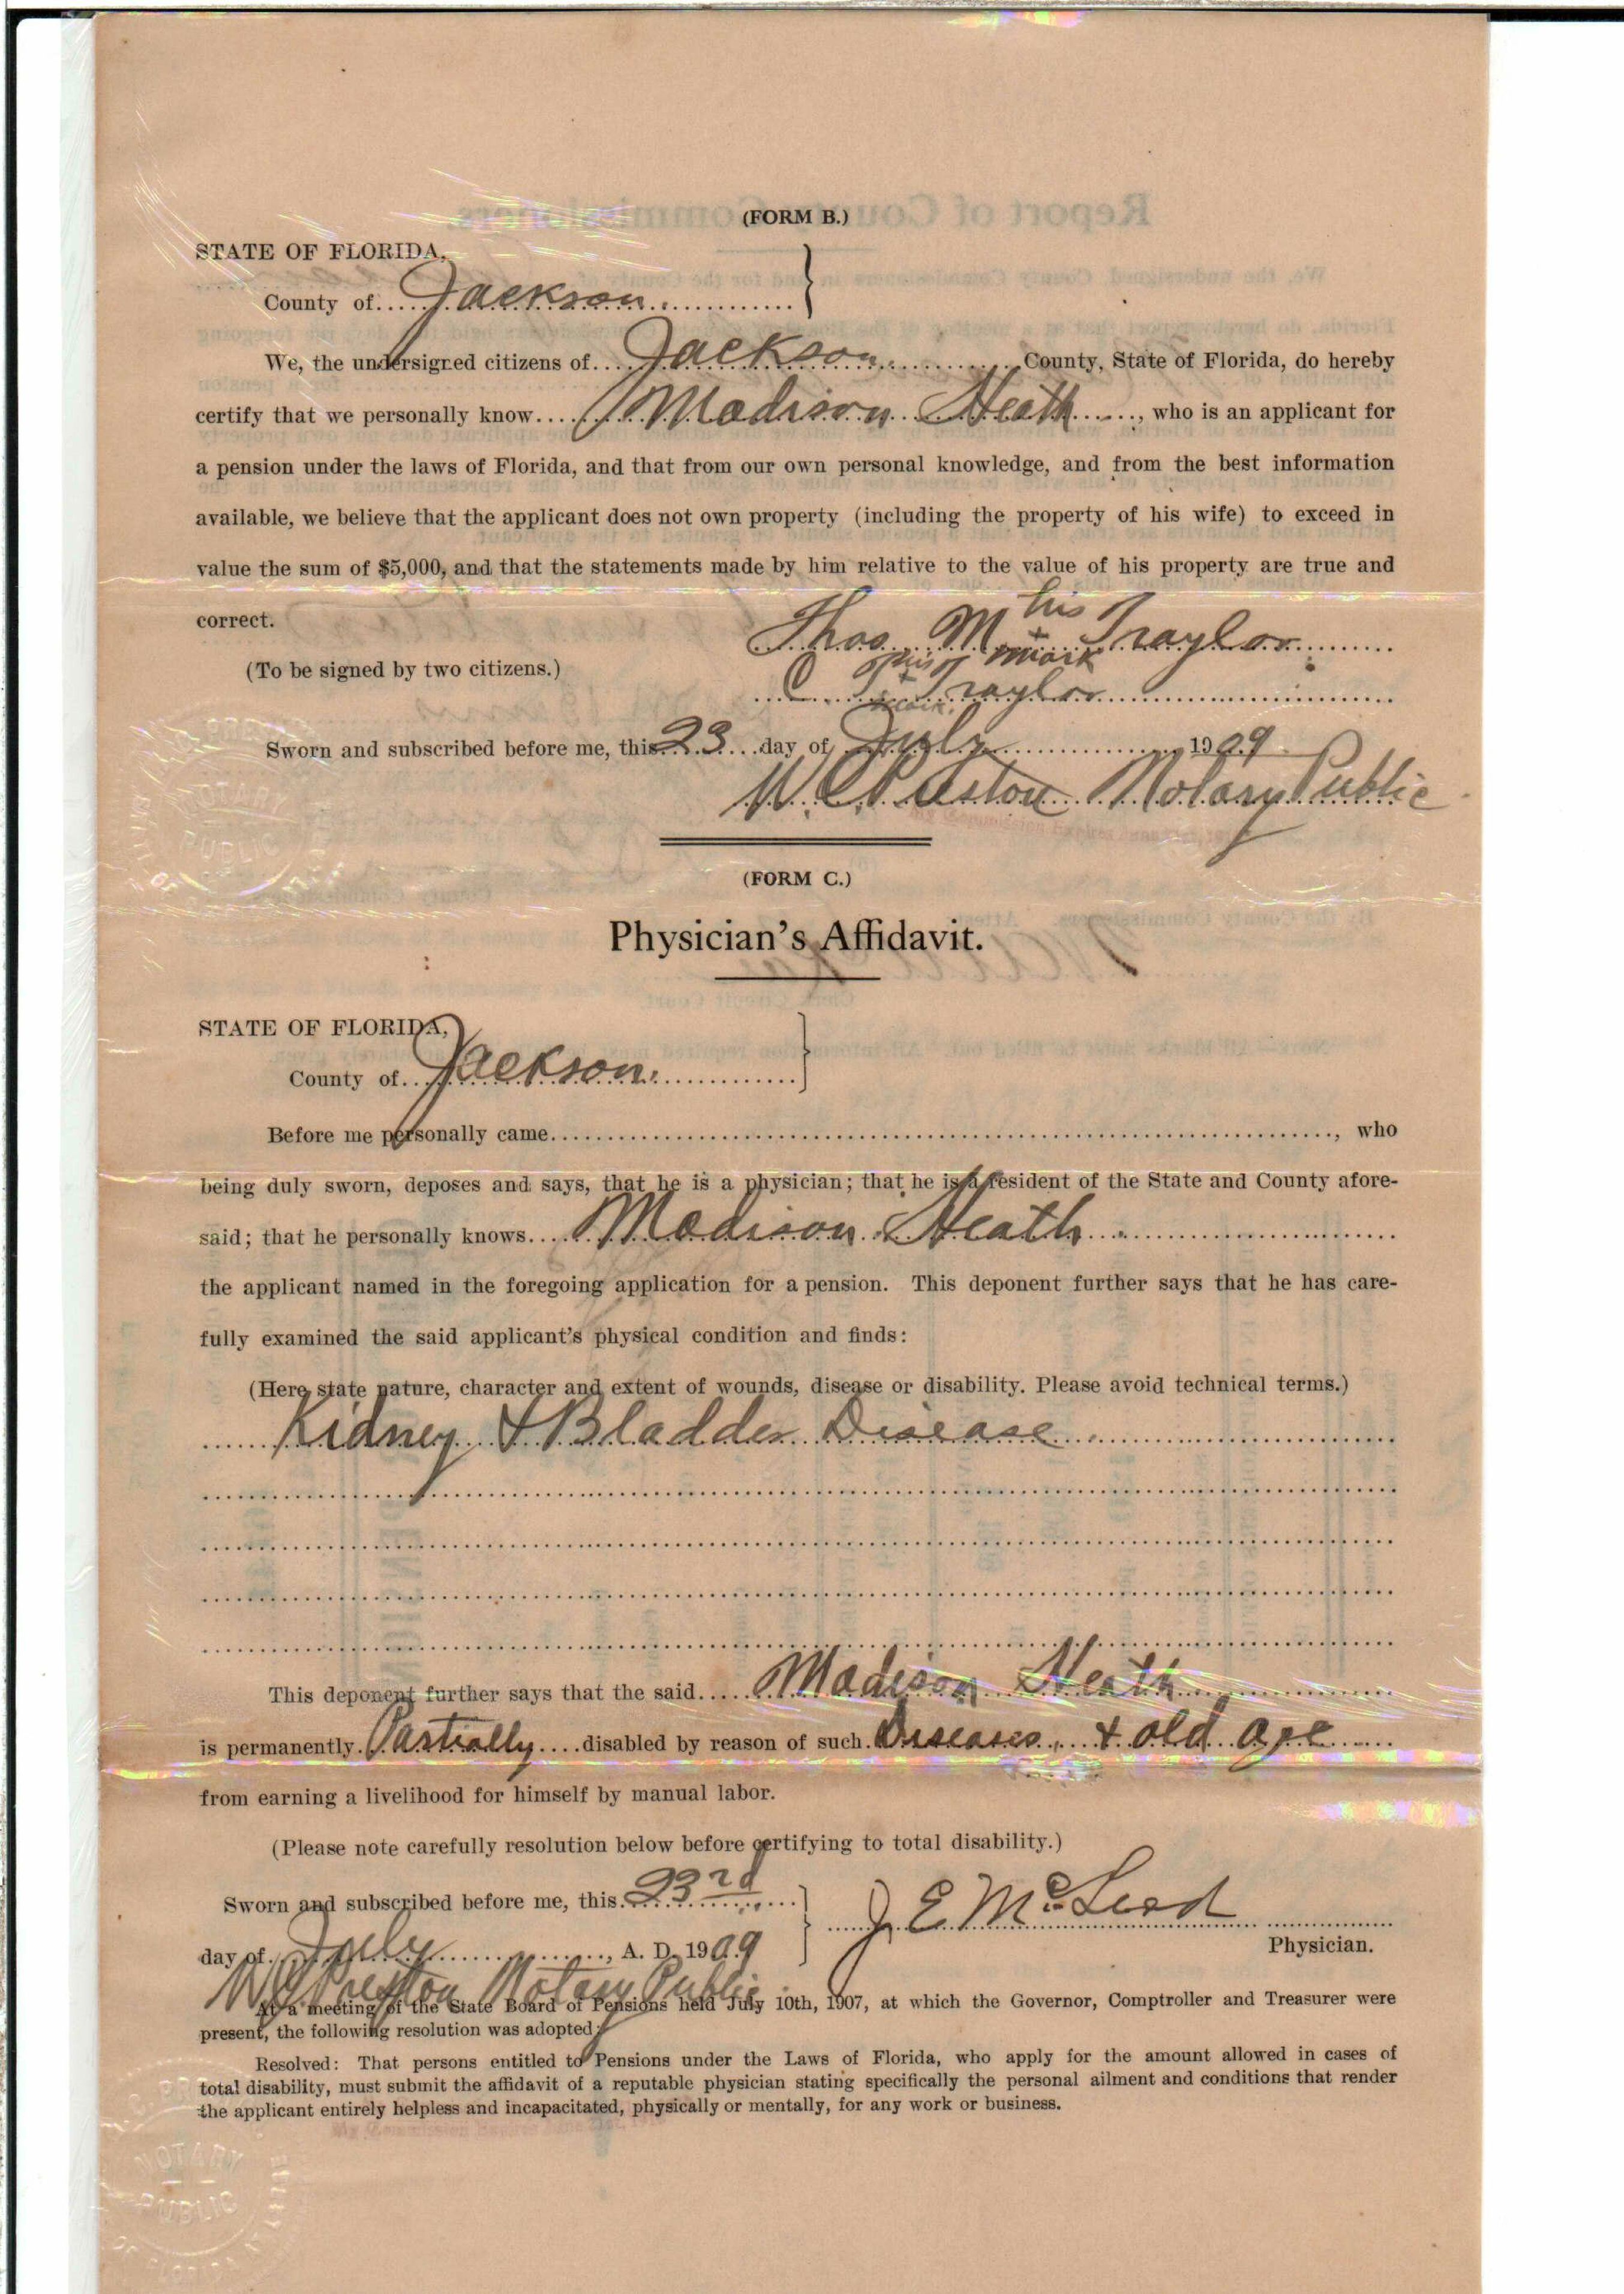 (FORM B.)
STATE OF FLORIDA,
County of Jackson
We, the undersigned citizens of Jackson County, State of Florida, do hereby
certify that we personally know Madison Heath, who is an applicant for
a pension under the laws of Florida, and that from our own personal knowledge, and from the best information
available, we believe that the applicant does not own property (including the property of his wife) to exceed in
value the sum of $5,000, and that the statements made by him relative to the value of his property are true and
correct.
his
Thos. M + Traylor
mark
(To be signed by two citizens.)
his
C T + Traylor
mark
Sworn and subscribed before me, this 23 day of July 1909
W. C. Preston Notary Public
My Commission Expires
NOTARY
PUBLIC
(FORM C.)
Physician's Affidavit.
STATE OF FLORIDA,
County of Jackson
Before me personally came, who
being duly sworn, deposes and says, that he is a physician; that he is a resident of the State and County afore-
said; that he personally knows Madison Heath
the applicant named in the foregoing application for a pension. This deponent further says that he has care-
fully examined the said applicant's physical condition and finds:
(Here state nature, character and extent of wounds, disease or disability. Please avoid technical terms.)
Kidney & Bladder Disease
This deponent further says that the said Madison Heath
is permanently Partially disabled by reason of such Diseases & old age
from earning a livelihood for himself by manual labor.
(Please note carefully resolution below before certifying to total disability.)
Sworn and subscribed before me, this 23rd
day of July, A. D. 1909
J. E. McLeod
Physician.
W C Preston Notary Public
At a meeting of the State Board of Pensions held July 10th, 1907, at which the Governor, Comptroller and Treasurer were
present, the following resolution was adopted:
Resolved: That persons entitled to Pensions under the Laws of Florida, who apply for the amount allowed in cases of
total disability, must submit the affidavit of a reputable physician stating specifically the personal ailment and conditions that render
the applicant entirely helpless and incapacitated, physically or mentally, for any work or business.
NOTARY
PUBLIC